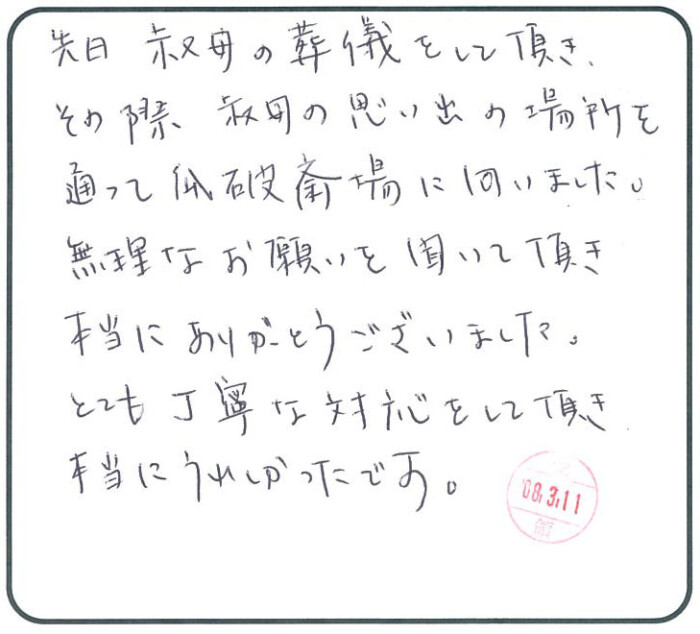 先日 叔母の葬儀をして頂き、
その際 叔母の思い出の場所を
通って瓜破斎場に向いました。
無理なお願いを聞いて頂き
本当にありがとうございました。
とても丁寧な対応をして頂き
本当にうれしかったです。
'08.3.11